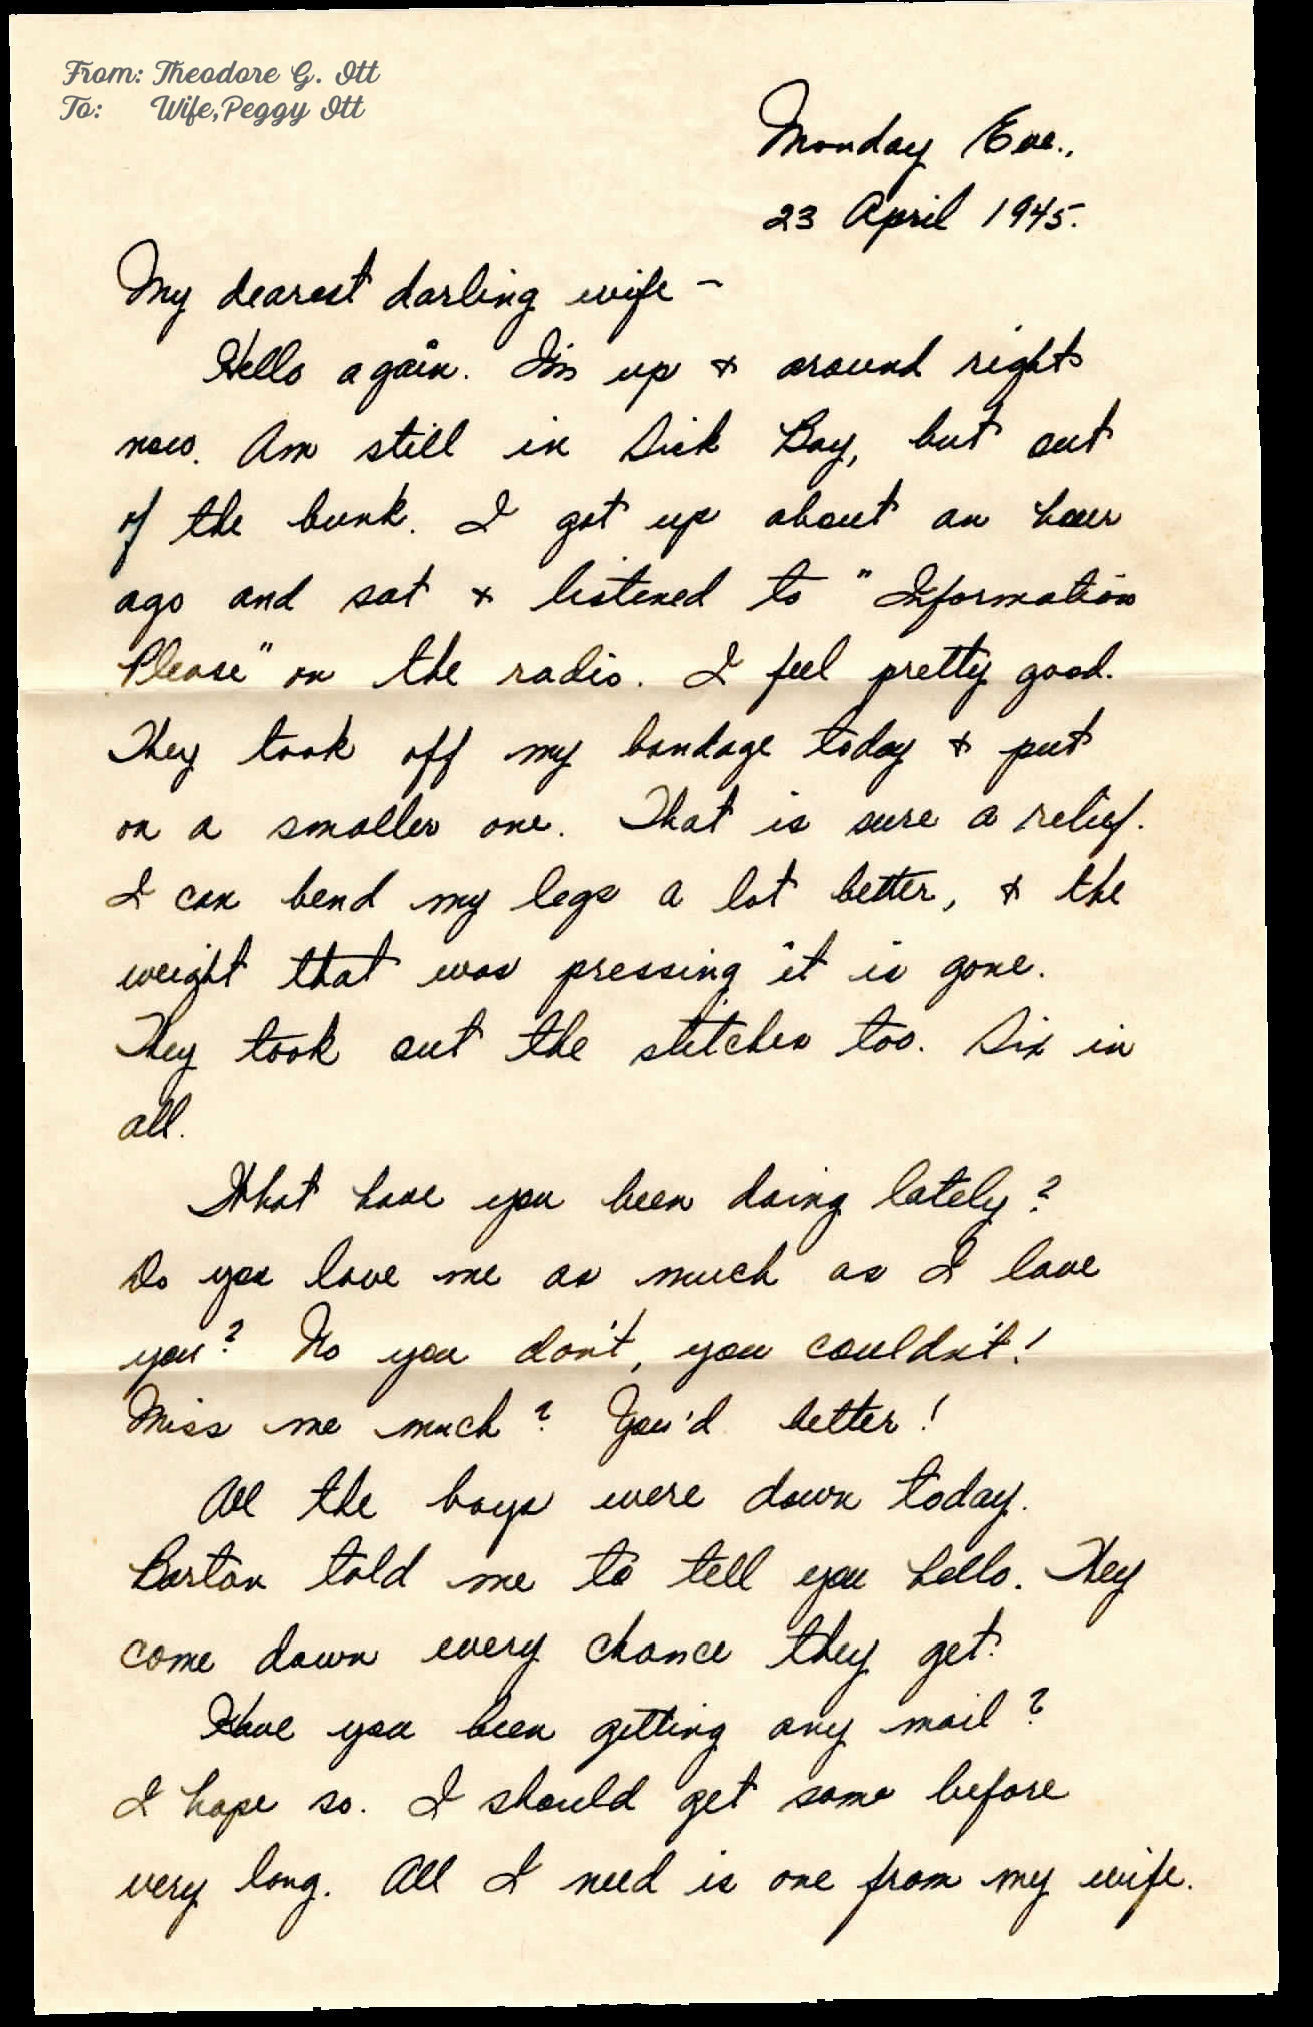 From: Theodore G. Ott
To: Wife, Peggy Ott
Monday Eve.,
23 April 1945.
My dearest darling wife –
Hello again. I'm up & around right
now. Am still in Sick Bay, but out
of the bunk. I got up about an hour
ago and sat & listened to "Information
Please" on the radio. I feel pretty good.
They took off my bandage today & put
on a smaller one. That is sure a relief.
I can bend my legs a lot better, & the
weight that was pressing it is gone.
They took out the stitches too. Six in
all.
What have you been doing lately?
Do you love me as much as I love
you? No you don't, you couldn't!
Miss me much? You'd better!
All the boys were down today.
Barton told me to tell you hello. They
come down every chance they get.
Have you been getting any mail?
I hope so. I should get some before
very long. All I need is one from my wife.